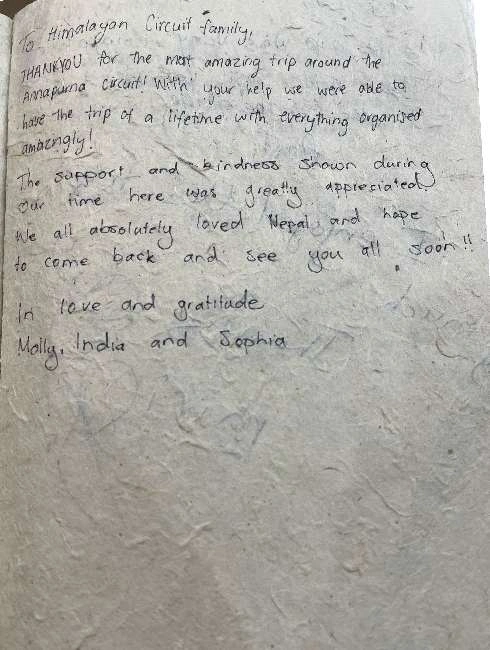 To Himalayan Circuit family,
THANKYOU for the most amazing trip around the
Annapurna circuit! With your help we were able to
have the trip of a lifetime with everything organised
amazingly!
The support and kindness shown during
our time here was greatly appreciated.
We all absolutely loved Nepal and hope
to come back and see you all soon!!
In love and gratitude
Molly, India and Sophia